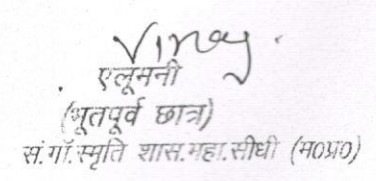 Vinay.
एलूमनी
(भूतपूर्व छात्र)
सं.गॉ.स्मृति शास.महा.सीधी (म०प्र०)